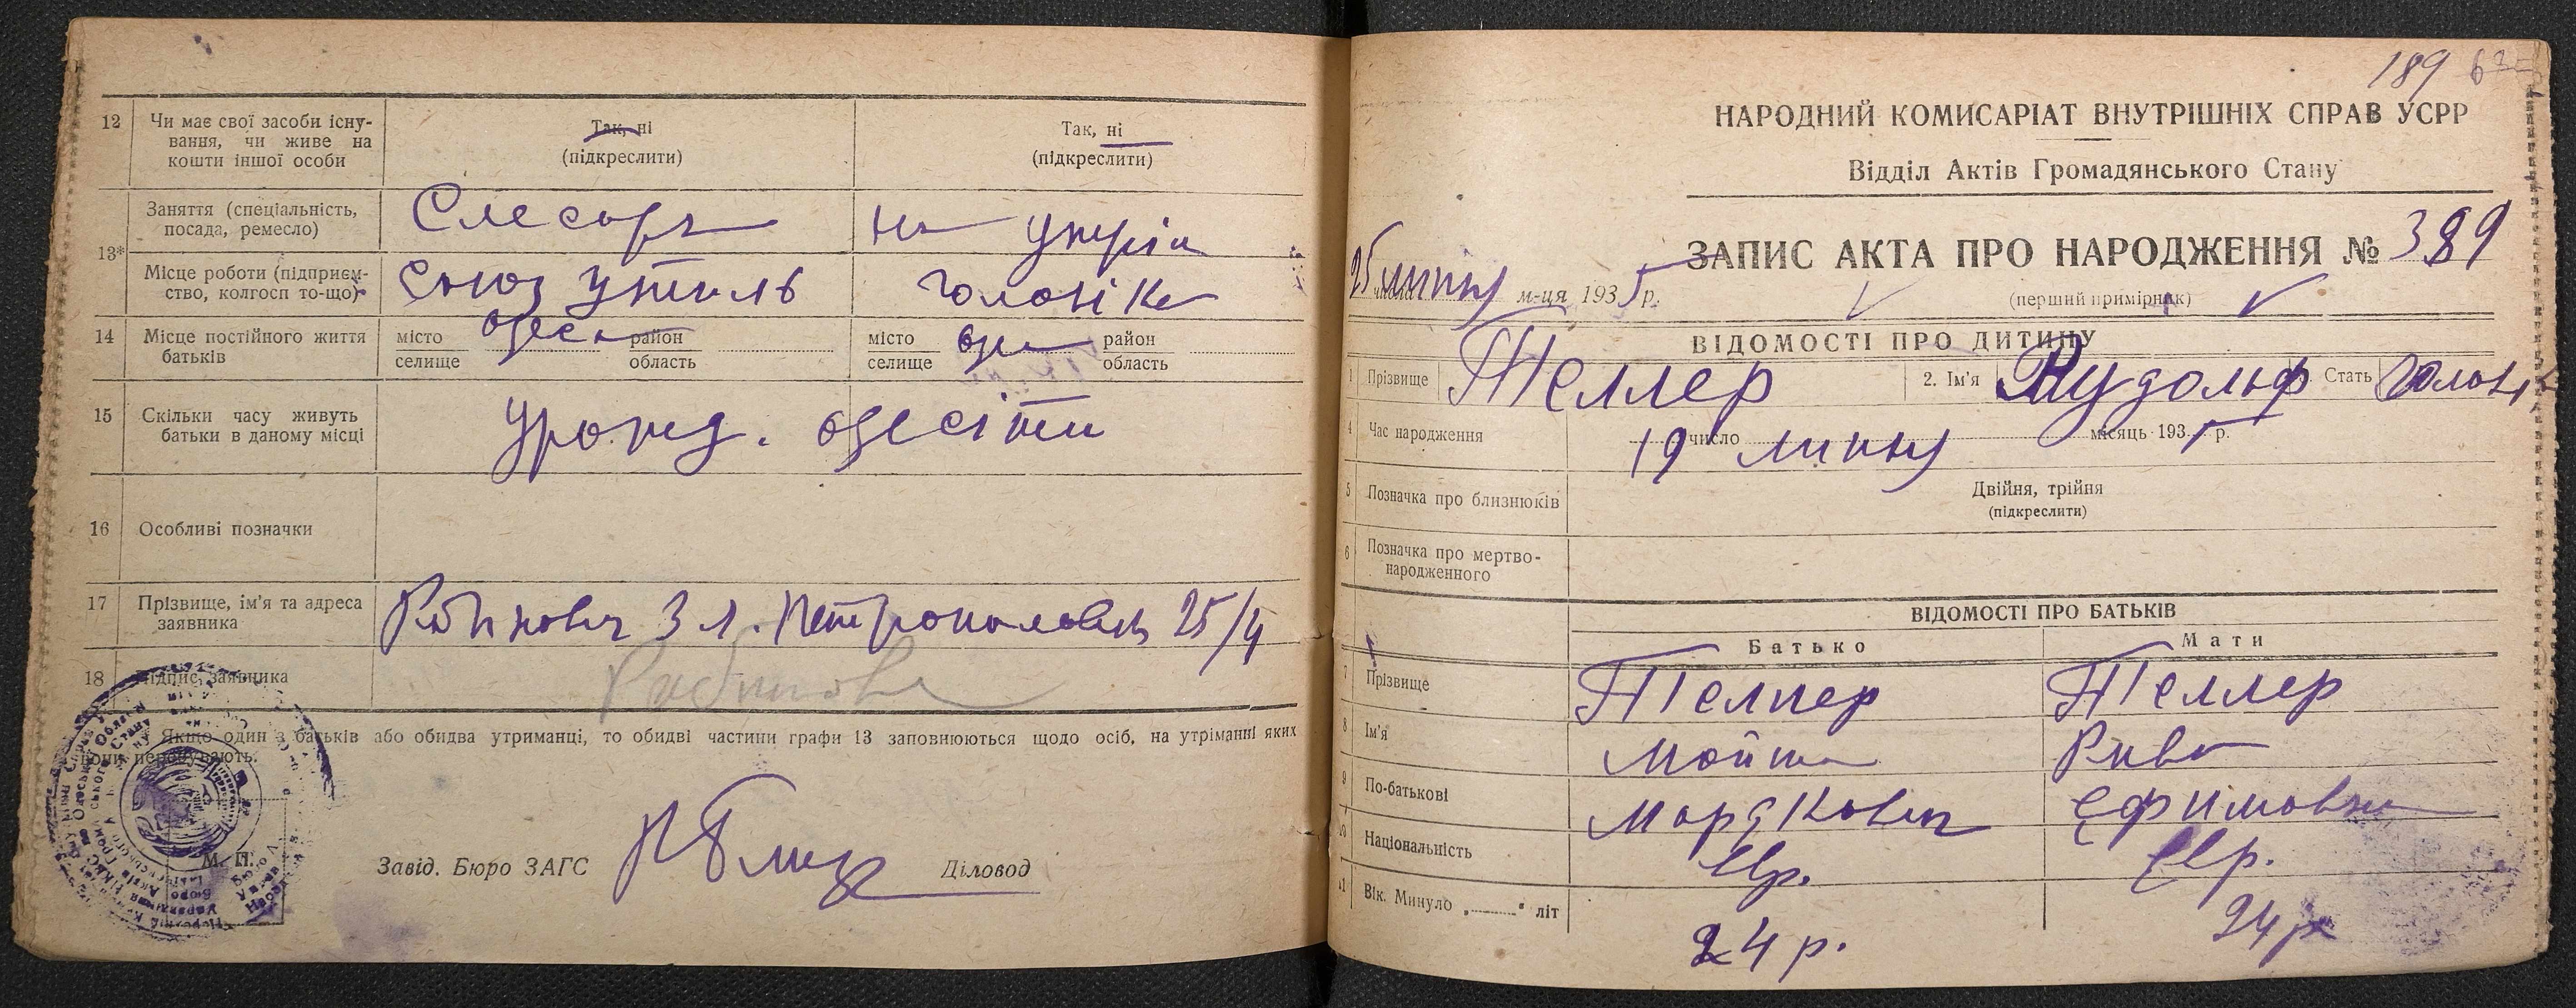 12 Чи має свої засоби існу-
вання, чи живе на
кошти іншої особи
Так, ні
(підкреслити)
Так, ні
(підкреслити)
13*
Заняття (спеціальність,
посада, ремесло)
Слесарь
на утрім
Місце роботи (підприєм-
ство, колгосп то-що)
Союз утиль
чоловіка
14 Місце постійного життя
батьків
місто Одеса район
селище область
місто Оде район
селище область
15 Скільки часу живуть
батьки в даному місці
урожд. одесіти
16 Особливі позначки
17 Прізвище, ім'я та адреса
заявника
Рабинович З Л. Петропаловськ 25/4
18 Підпис заявника
Рабинович
Якщо один з батьків або обидва утриманці, то обидві частини графи 13 заповнюються щодо осіб, на утриманні яких
вони перебувають.
М. П.
Завід. Бюро ЗАГС
Діловод
189
НАРОДНИЙ КОМИСАРІАТ ВНУТРІШНІХ СПРАВ УСРР
Відділ Актів Громадянського Стану
ЗАПИС АКТА ПРО НАРОДЖЕННЯ № 389
25 липня м-ця 1935 р.
(перший примірник)
ВІДОМОСТІ ПРО ДИТИНУ
1 Прізвище Теллер 2. Ім'я Рудольф Стать чолов
4 Час народження 19 число липня місяць 1935 р.
5 Позначка про близнюків
Двійня, трійня
(підкреслити)
6 Позначка про мертво-
народженного
ВІДОМОСТІ ПРО БАТЬКІВ
Батько Мати
7 Прізвище Теллер Теллер
8 Ім'я Мойша Рива
9 По-батькові Мордкович Ефимовна
10 Національність Євр. Євр.
11 Вік. Минуло „......" літ 24 р. 24 р